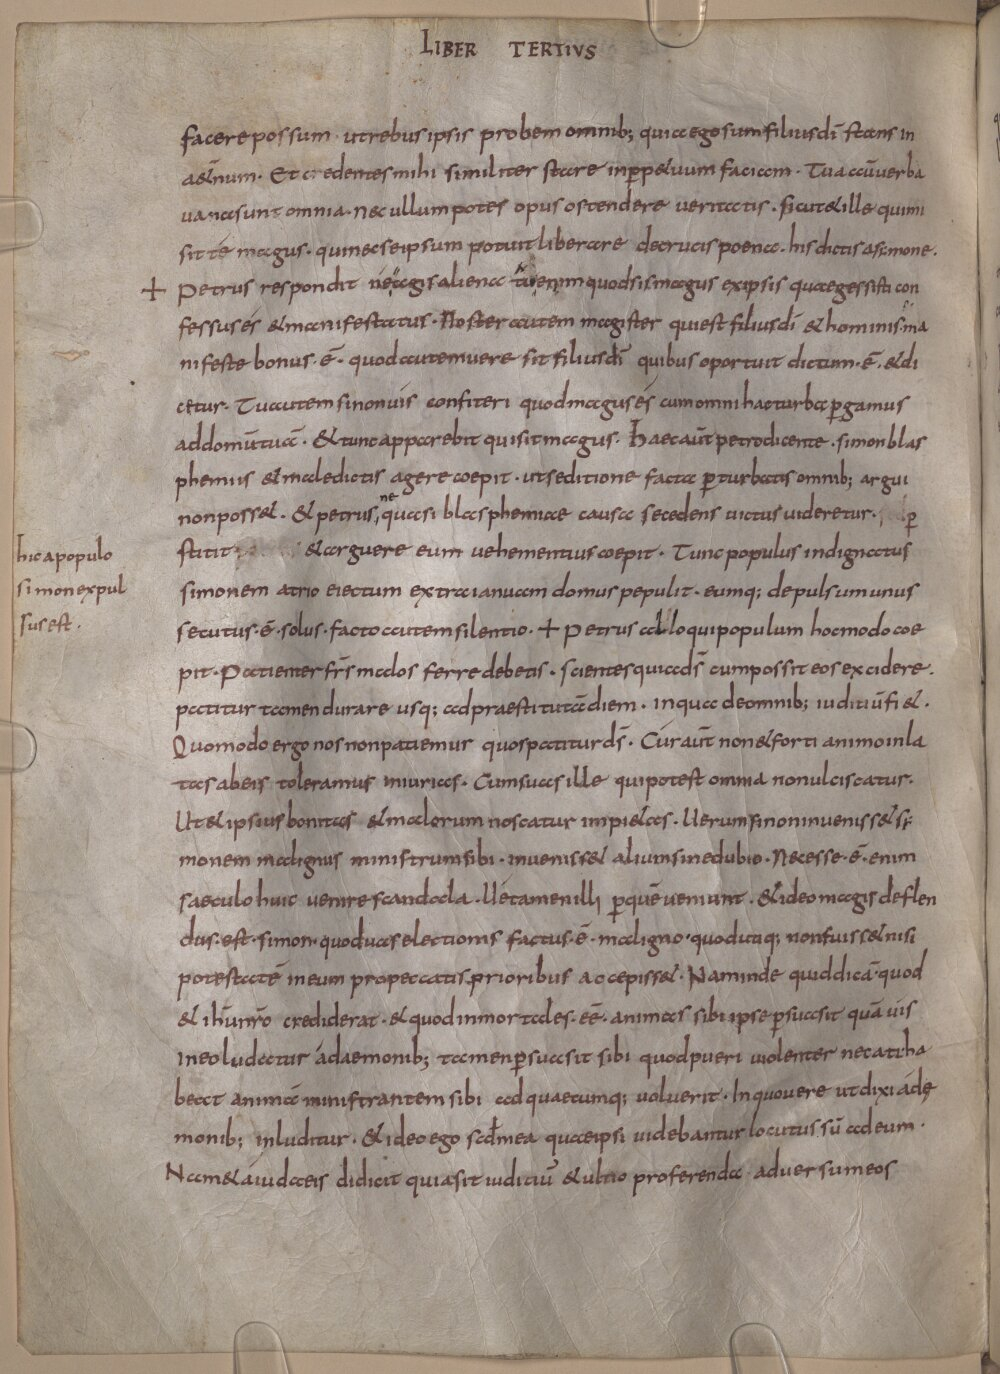 LIBER TERTIVS
facere possum · ut rebus ipsis probem omnib; quia ego sum filius dī stans in
aet̄num · Et credentes mihi similiter stare in ꝑpetuum faciam · Tua aū verba
vana sunt omnia · nec ullum potes opus ostendere veritatis · sicut et ille qui mi
sit te magus · qui nec se ipsum potuit liberare de crucis poena · his dictis a simone ·
+ Petrus respondit ne agis aliena tu enim quod sis magus ex ipsis quae gessisti con
fessus es et manifestatus · Noster autem magister qui est filius dī et hominis · ma
nifeste bonus · ē · quod autem uere sit filius dī quibus oportuit dictum · ē · et di
cetur · Tu autem si non uis confiteri quod magus es cum omni hac turba ꝑgamus
ad domū tuā · et tunc apparebit quis it magus · haec aūt petro dicente · simon blas
phemiis et maledictis agere coepit · ut seditione facta ꝑturbatis omnib; argui
non posset · et petrus, ne quasi blasphemiae causa secedens uictus uideretur · ꝑ
stitit et arguere eum uehementius coepit · Tunc populus indignatus
hic a populo
simon expul
sus est ·
simonem atrio eiectum extra ianuam domus pepulit · eumq; depulsum unus
secutus · ē · solus · facto autem silentio · + Petrus alloqui populum hoc modo coe
pit · Patienter frs malos ferre debetis · scientes quia ds cum possit eos excidere ·
patitur tamen durare usq; ad praestitutā diem · in qua de omnib; iuditiū fiet ·
Quomodo ergo nos non patiemur quos patitur ds · Cur aūt non et forti animo inla
tas ab eis toleramus iniurias · Cum suas ille qui potest omnia non ulciscatur ·
Ut et ipsius bonitas et malorum noscatur impietas · Uerum si non inuenisset si
monem malignus ministrum sibi · inuenisset alium sine dubio · Necesse · ē · enim
saeculo huic uenire scandala · Ue tamen illi ꝑ quē ueniunt · et ideo magis deflen
dus · est · simon · quod uas electionis factus · ē · maligno · quod utiq; non fuisset nisi
potestatē in eum pro peccatis prioribus accepisset · Nam inde quid dicā · quod
et ih̄u nr̄o crediderat · et quod inmortales · eē · animas sibi ipse ꝑsuasit quā uis
in eo ludatur a daemonib; tamen ꝑsuasit sibi quod pueri uiolenter necati ha
beat animā ministrantem sibi ad quaecumq; uoluerit · In quo uere ut dixi a dę
monib; inluditur · et ideo ego scdm ea quae ipsi uidebantur locutus sū ad eum ·
Nam et a iudaeis didicit quia sit iuditiū et ultio proferenda aduersum eos